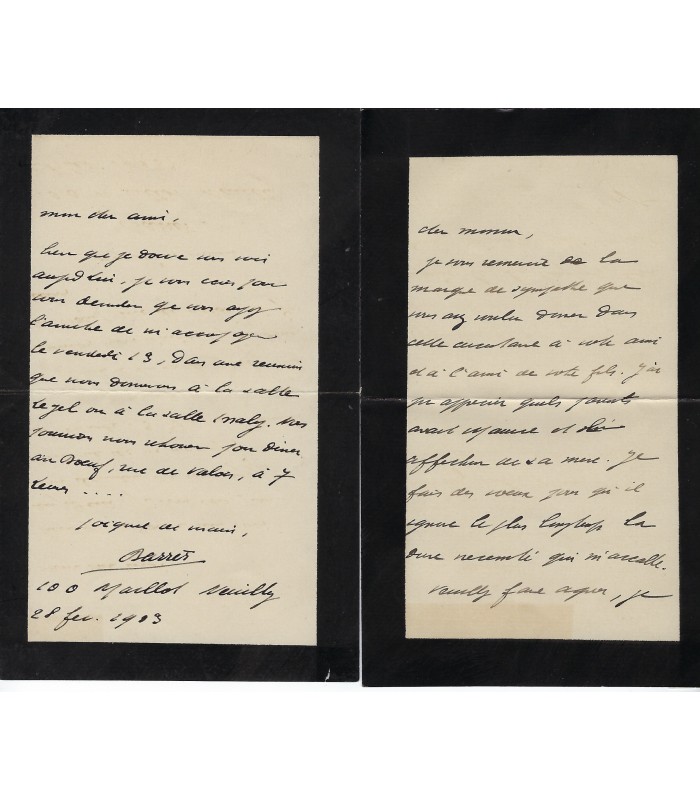 mon cher ami,
bien que je doive vous voir
aujourd'hui, je vous écris pour
vous demander que vous ayez
l'amitié de m'accompagner
le vendredi 13, dans une réunion
que nous donnons à la salle
ou à la salle. Nous
pourrions nous retrouver pour dîner
au Boeuf, rue de Valois, à 7
heures ....
de main,
Barrès
100 Maillot Neuilly
28 fev. 1903
cher monsieur,
je vous remercie de la
marque de sympathie que
vous avez voulu donner dans
cette circonstance à votre ami
et à l'ami de votre fils. J'ai
pu apprécier quels
avait Maurice et
affection de sa mère. Je
fais des voeux pour qu'il
ignore le plus longtemps la
dure nécessité qui m'accable.
Veuillez faire agréer, je